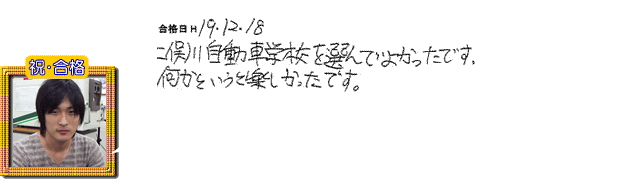 合格日H19.12.18
二俣川自動車学校を選んでよかったです.
何かというと楽しかったです。
祝・合格